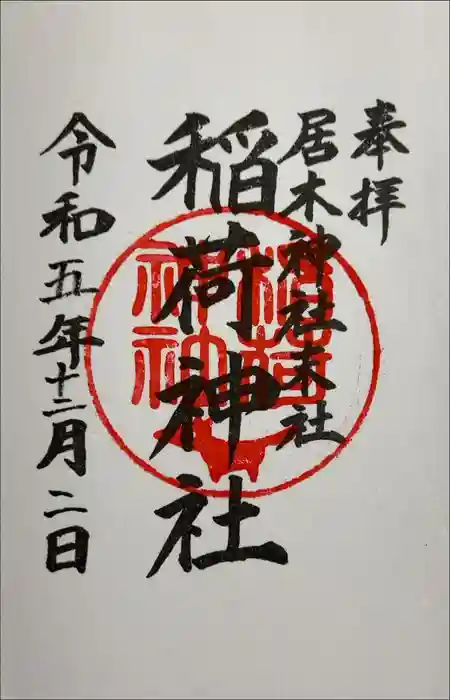 奉拝
居木神社末社
稲荷神社
令和五年十二月二日
稲荷
神社